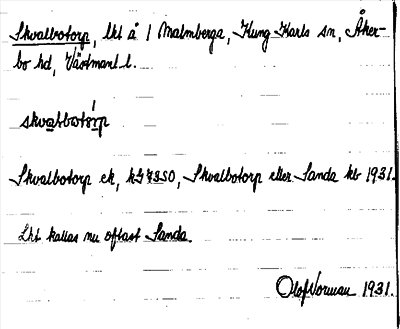 Skvalbotorp, lht å 1 Malmberga, Kung Karls sn, Åker-
bo hd, Västmanl l.
skvalbotorp
Skvalbotorp ek, Skvalbotorp eller Sanda kb 1931.
Lht kallas nu oftast Sanda.
Olof Norman 1931.